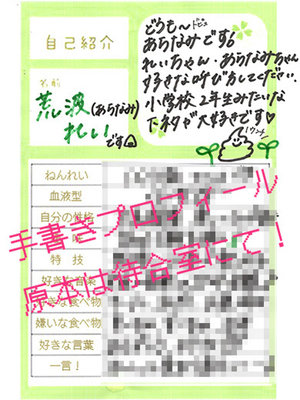 自己紹介
名前
荒波(あらなみ)
れい
です
どうも〜
あらなみです!
れいちゃん・あらなみちゃん
好きな呼び方してくださいー
小学校2年生みたいな
下ネタが大好きです♡
ねんれい
血液型
自分の性格
特技
好きな音楽
好きな食べ物
嫌いな食べ物
好きな言葉
一言!
手書きプロフィール
原本は待合室にて!